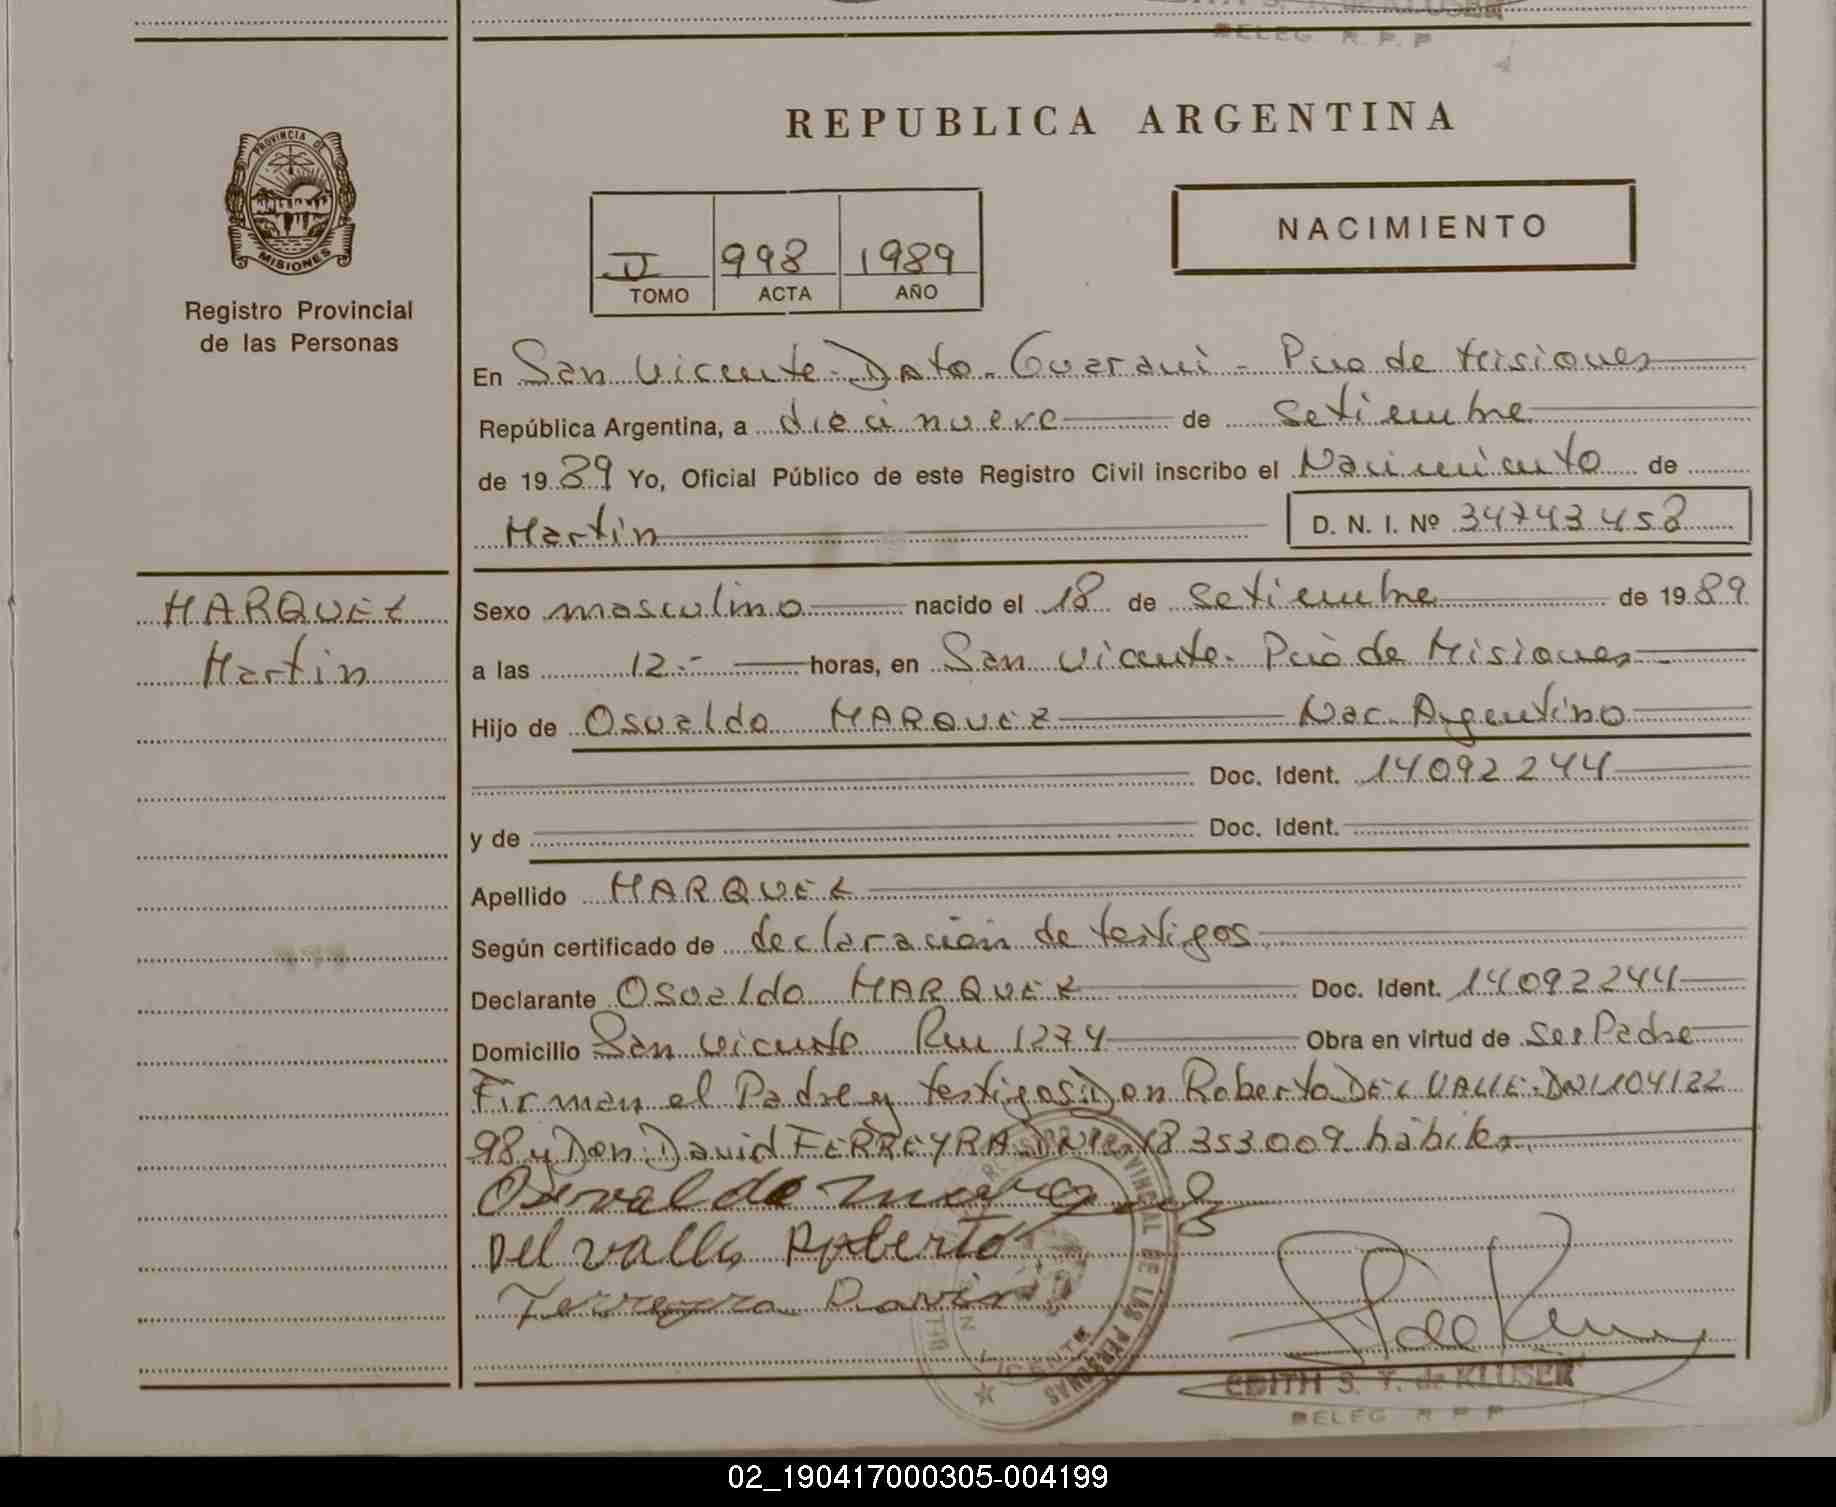 EDITH S. T. de KLUSER
DELEG R. P. P
PROVINCIA DE
MISIONES
Registro Provincial
de las Personas
REPUBLICA ARGENTINA
NACIMIENTO
II 998 1989
TOMO ACTA AÑO
En San Vicente - Dpto - Guarani - Pcia de Misiones
República Argentina, a dieci nueve de Setiembre
de 1989 Yo, Oficial Público de este Registro Civil inscribo el Nacimiento de
Martin D. N. I. Nº 34743458
MARQUEZ
Martin
Sexo masculino nacido el 18 de Setiembre de 1989
a las 12.- horas, en San Vicente - Pcia de Misiones
Hijo de Osvaldo MARQUEZ Nac. Argentino
Doc. Ident. 14092244
y de Doc. Ident.
Apellido MARQUEZ
Según certificado de declaración de testigos
Declarante Osvaldo MARQUEZ Doc. Ident. 14092244
Domicilio San Vicente Ru 1274 Obra en virtud de Ser Padre
Firman el Padre y testigos: Don Roberto DEL VALLE - DNI 104122
98 y Don David FERREYRA DNI 18353.009 hábiles
Osvaldo marquez
Del valle Roberto
Ferreyra David
REGISTRO PROVINCIAL DE LAS PERSONAS
SAN VICENTE
EDITH S. T. de KLUSER
DELEG R P P
02_190417000305-004199